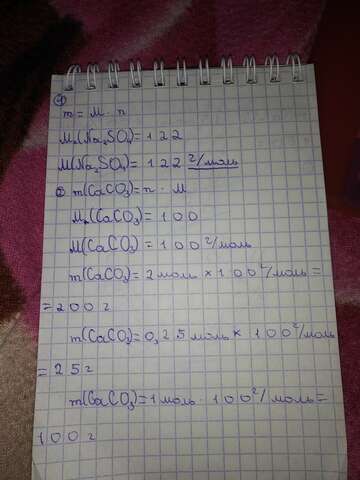 ①
m = M · n
Mr(Na₂SO₄) = 122
M(Na₂SO₄) = 122 г/моль
② m(CaCO₃) = n · M
Mr(CaCO₃) = 100
M(CaCO₃) = 100 г/моль
m(CaCO₃) = 2 моль × 100 г/моль =
= 200 г
m(CaCO₃) = 0,25 моль × 100 г/моль
= 25 г
m(CaCO₃) = 1 моль · 100 г/моль =
100 г